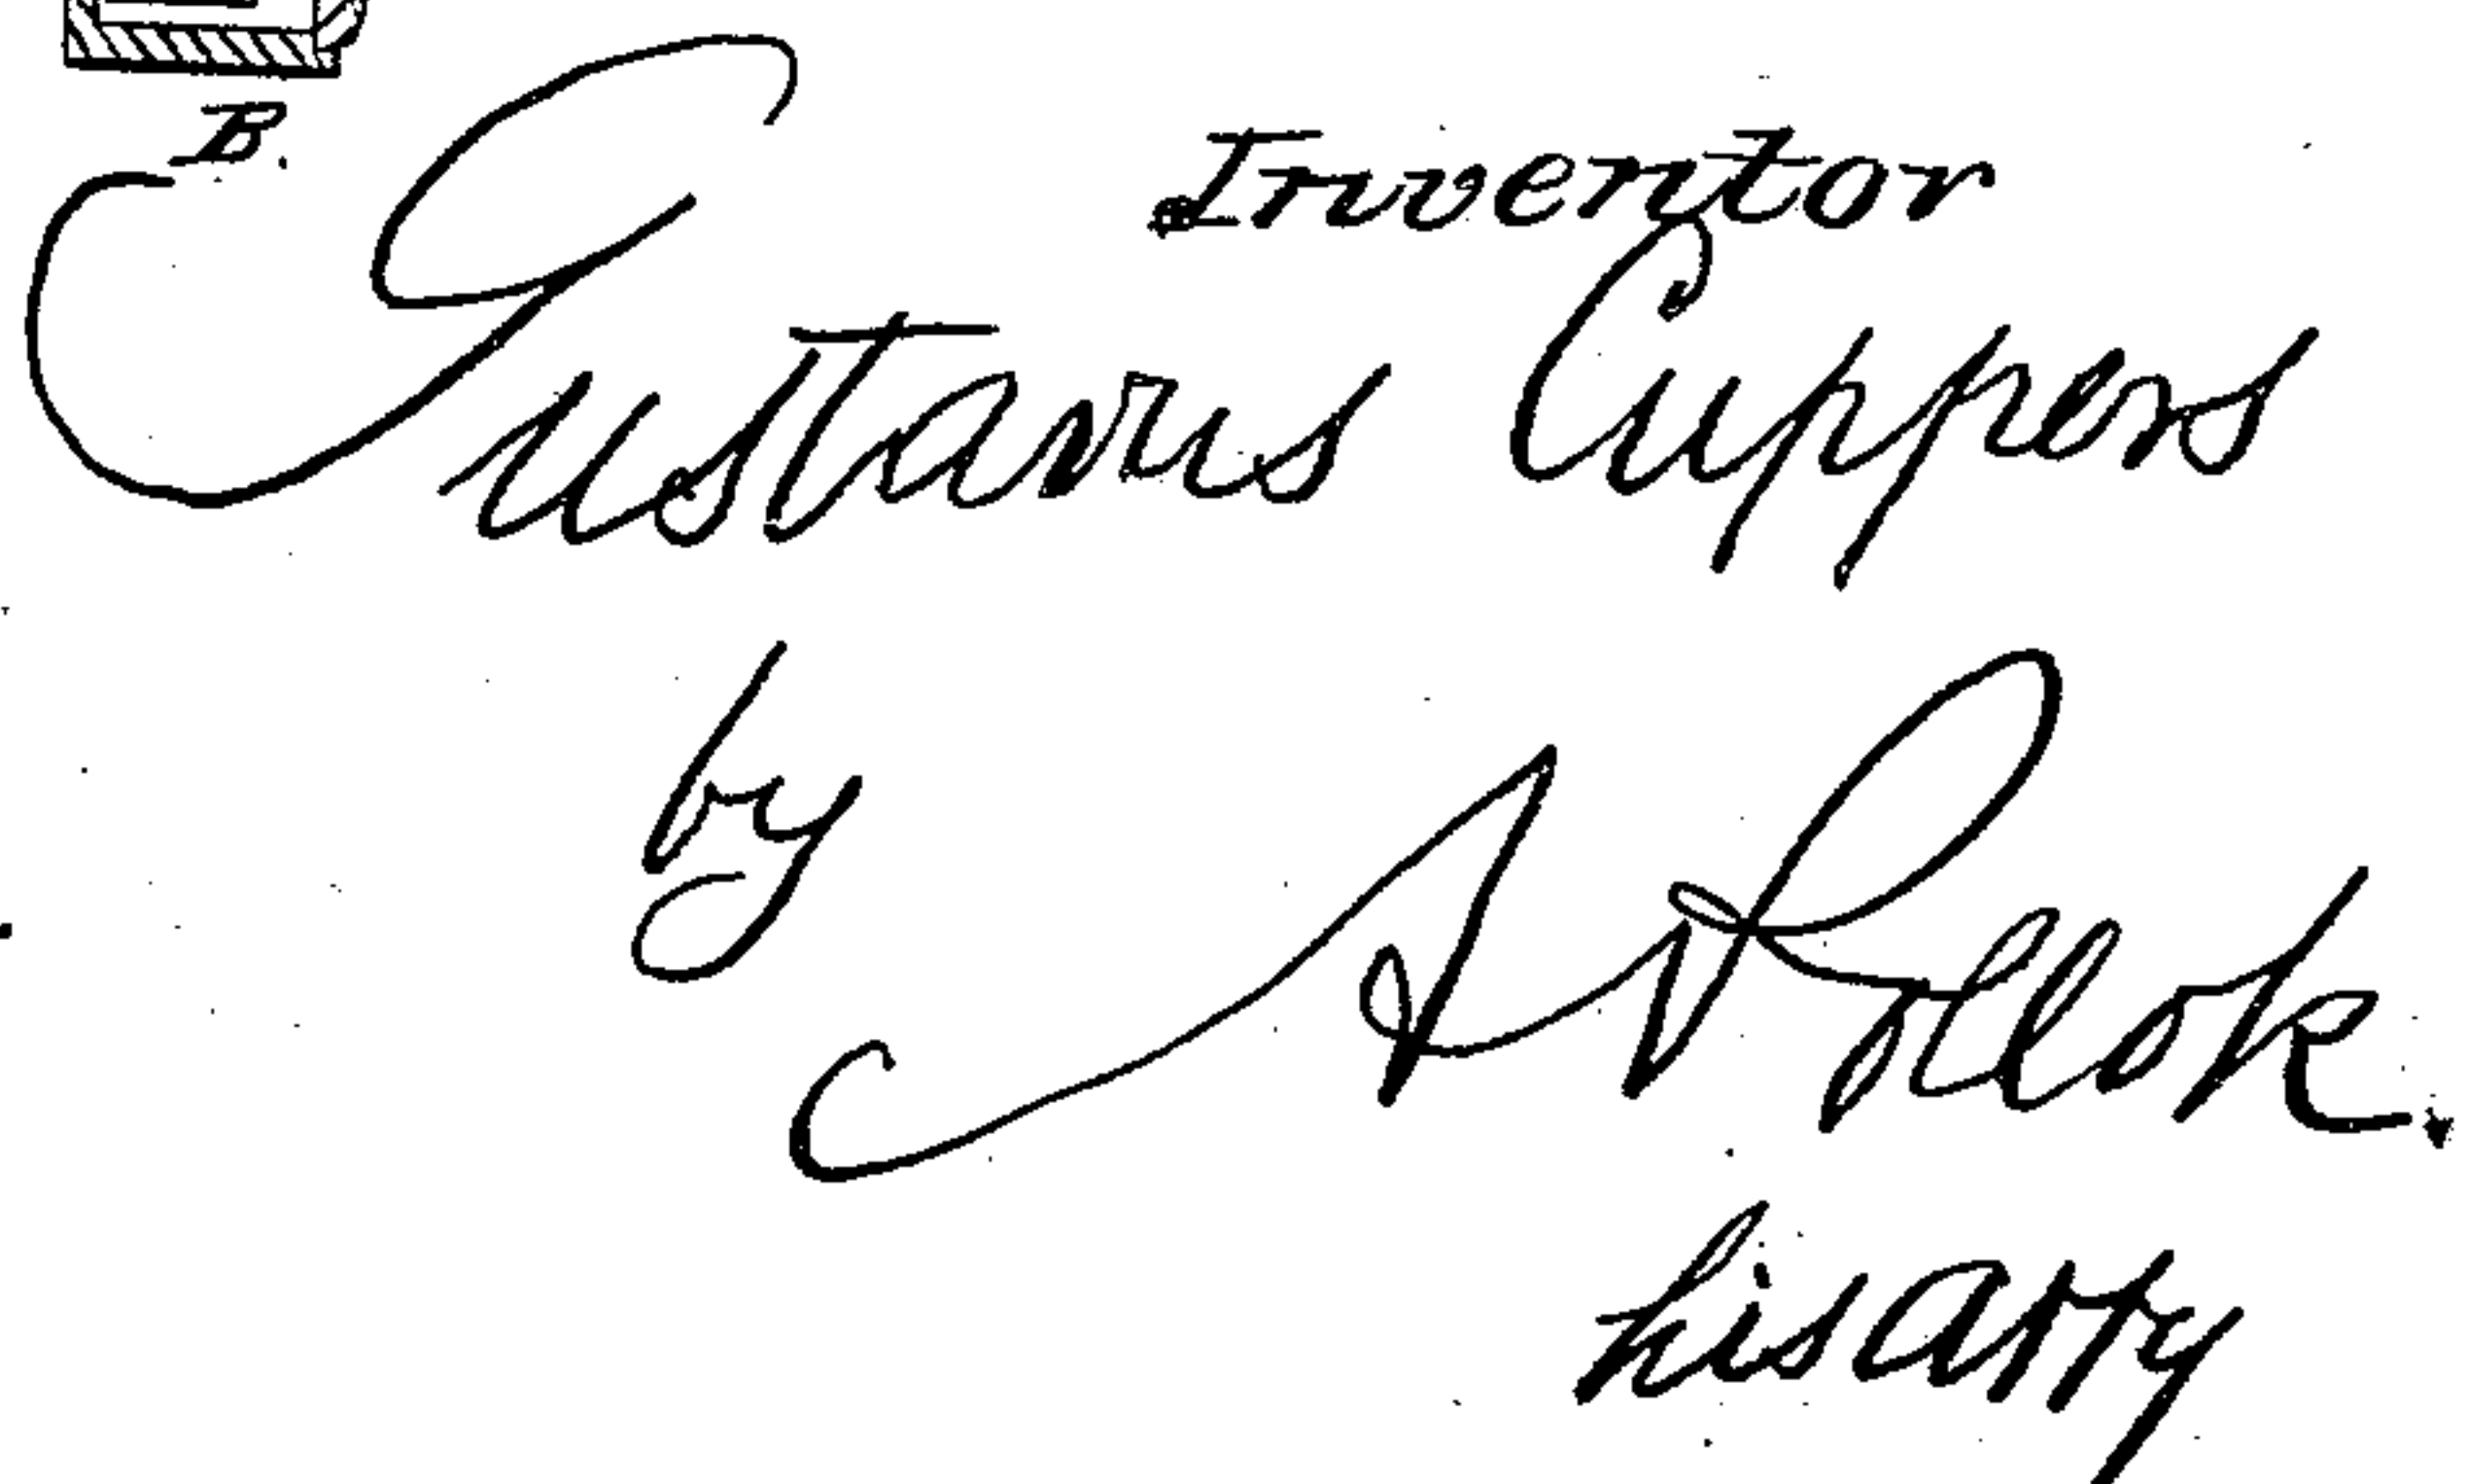 B.
Inventor
Gustavus Cuppers
by
A Pollok.
his atty